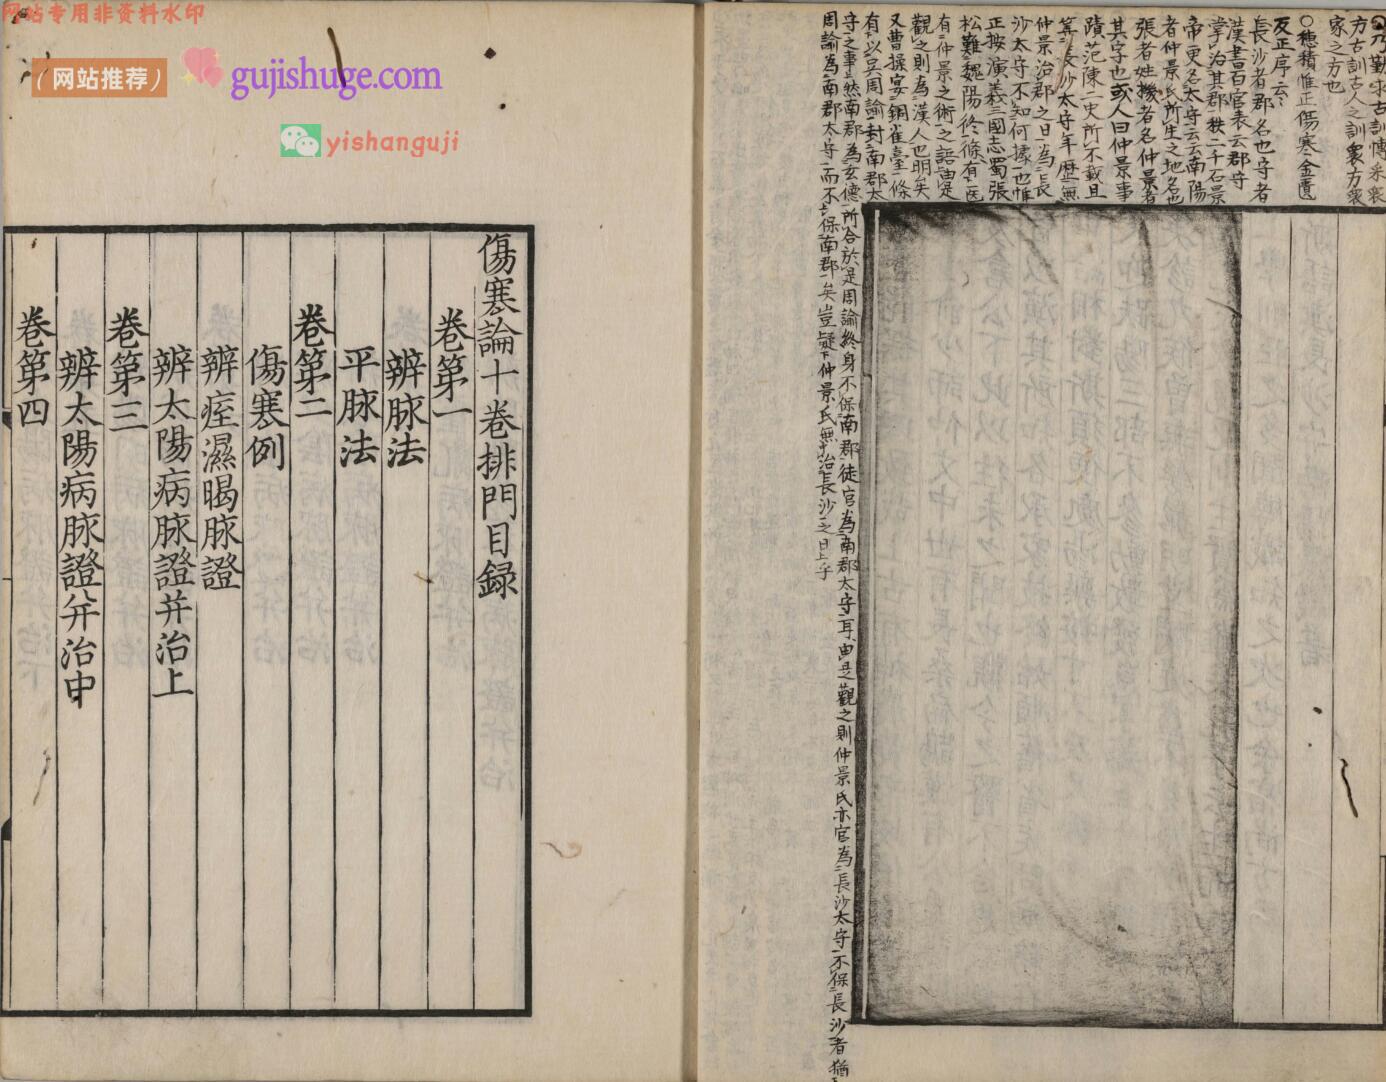 网站专用非资料水印
（网站推荐）
gujishuge.com
yishanguji
○乃勤求古訓博采衆
方古訓古人之訓衆方衆
家之方也
○穂積惟正傷寒金匱
反正序云
長沙者郡名也守者
漢書百官表云郡守
掌治其郡秩二千石景
帝更名太守云云南陽
者仲景氏所生之地名也
張者姓機者名仲景者
其字也或人曰仲景事
蹟范陳二史所不載且
長沙太守年歴無
仲景治郡之日為長
沙太守不知何據也惟
正按演義三國志蜀張
松難魏陽修條有医
有仲景之術之語由是
觀之則為漢人也明矣
又曹操宴銅雀臺條
有以吳周諭封南郡太
守之事然南郡為玄德所合於是周諭終身不保南郡徒官為南郡太守耳由是觀之則仲景氏亦官為長沙太守不保長沙者猶
周諭為南郡太守而不保南郡矣豈疑仲景氏無治長沙之日乎
傷寒論十卷排門目録
卷第一
辨脉法
平脉法
卷第二
傷寒例
辨痓濕暍脉證
辨太陽病脉證并治上
卷第三
辨太陽病脉證并治中
卷第四